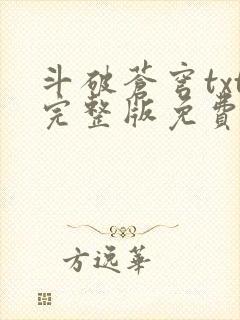 斗破蒼穹txt
完整版免費
方逸華